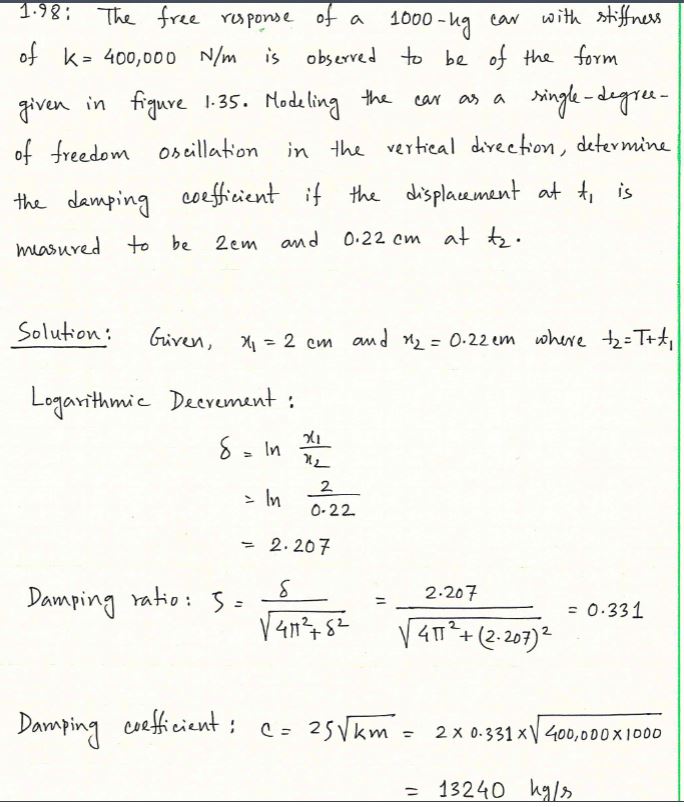 1.98: The free response of a 1000-kg car with stiffness
of k = 400,000 N/m is observed to be of the form
given in figure 1.35. Modeling the car as a single-degree-
of freedom oscillation in the vertical direction, determine
the damping coefficient if the displacement at t₁ is
measured to be 2cm and 0.22 cm at t₂.
Solution: Given, x₁ = 2 cm and x₂ = 0.22 cm where t₂=T+t₁
Logarithmic Decrement :
δ = ln x₁/x₂
= ln 2/0.22
= 2.207
Damping ratio: ζ = δ/√(4π²+δ²) = 2.207/√(4π²+(2.207)²) = 0.331
Damping coefficient : c = 2ζ√km = 2 x 0.331 x √400,000x1000
= 13240 kg/s